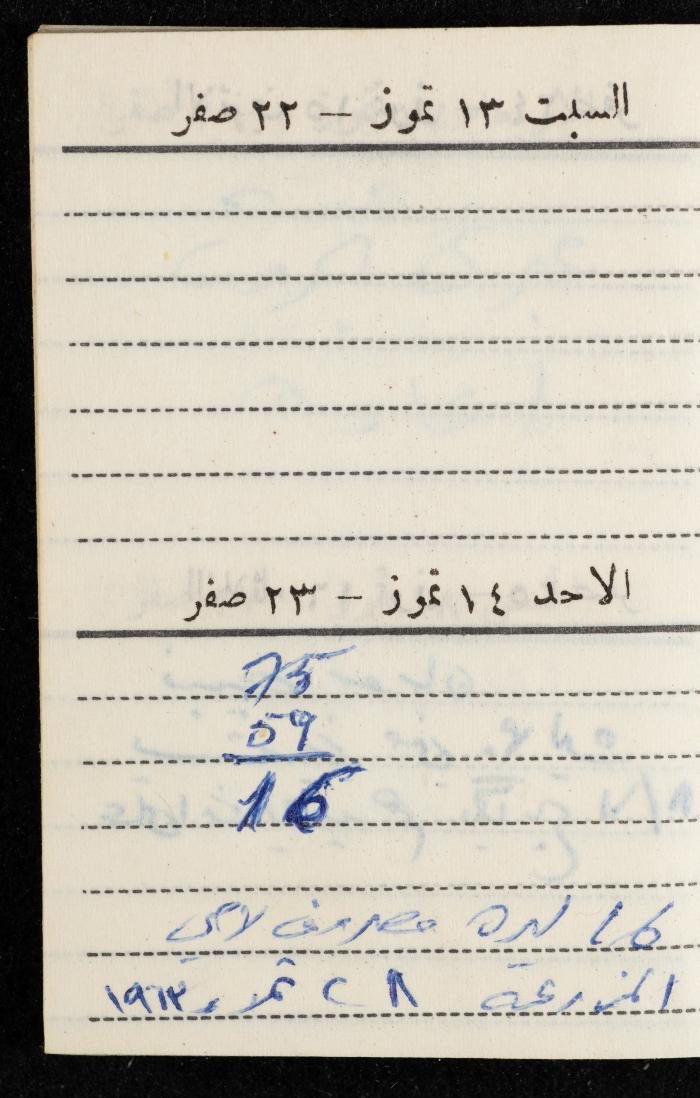 السبت ١٣ تموز – ٢٢ صفر
الاحد ١٤ تموز – ٢٣ صفر
75
59
16
16 ليرة مصروف لامي
المزرعة ٢٨ تموز ١٩٦٣